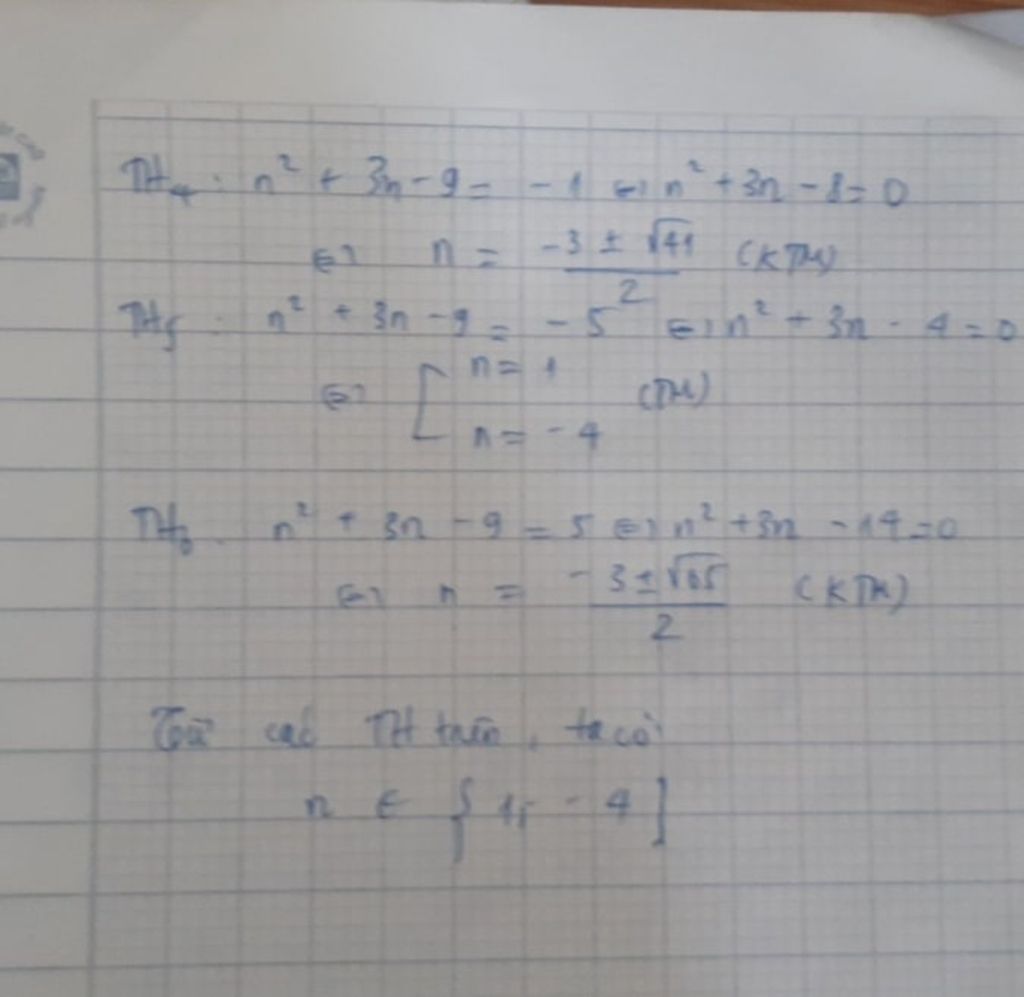 TH₄: n² + 3n - 9 = -1 ⇔ n² + 3n - 8 = 0
⇔ n = (-3 ± √41)/2 (KTM)
TH₅: n² + 3n - 9 = -5 ⇔ n² + 3n - 4 = 0
⇔ [ n = 1
n = -4 (TM)
TH₆: n² + 3n - 9 = 5 ⇔ n² + 3n - 14 = 0
⇔ n = (-3 ± √65)/2 (KTM)
Từ các TH trên, ta có
n ∈ {1; -4]